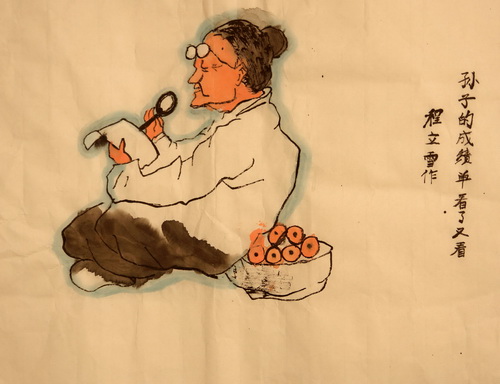 孙子的成绩单看了又看
程立雪作